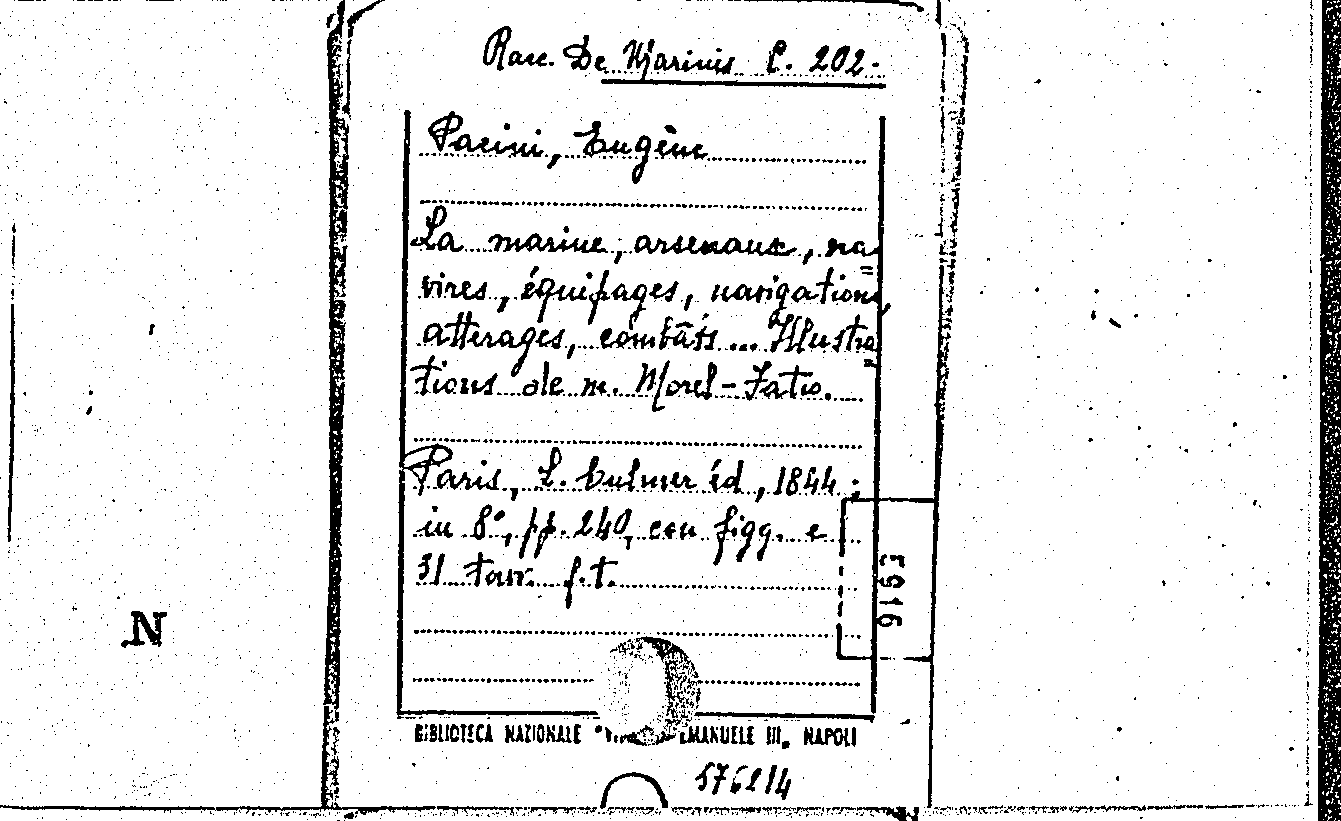 Racc. De Marinis C. 202.
Pacini, Eugène
La marine, arsenaux, na=
vires, équipages, navigations,
atterages, combats... Illustra=
tions de m. Morel-Fatio.
Paris, L. Culmer éd, 1844;
in 8°, pp. 240, con figg. e
31 tavv. f.t.
N
BIBLIOTECA NAZIONALE EMANUELE III, NAPOLI
576214